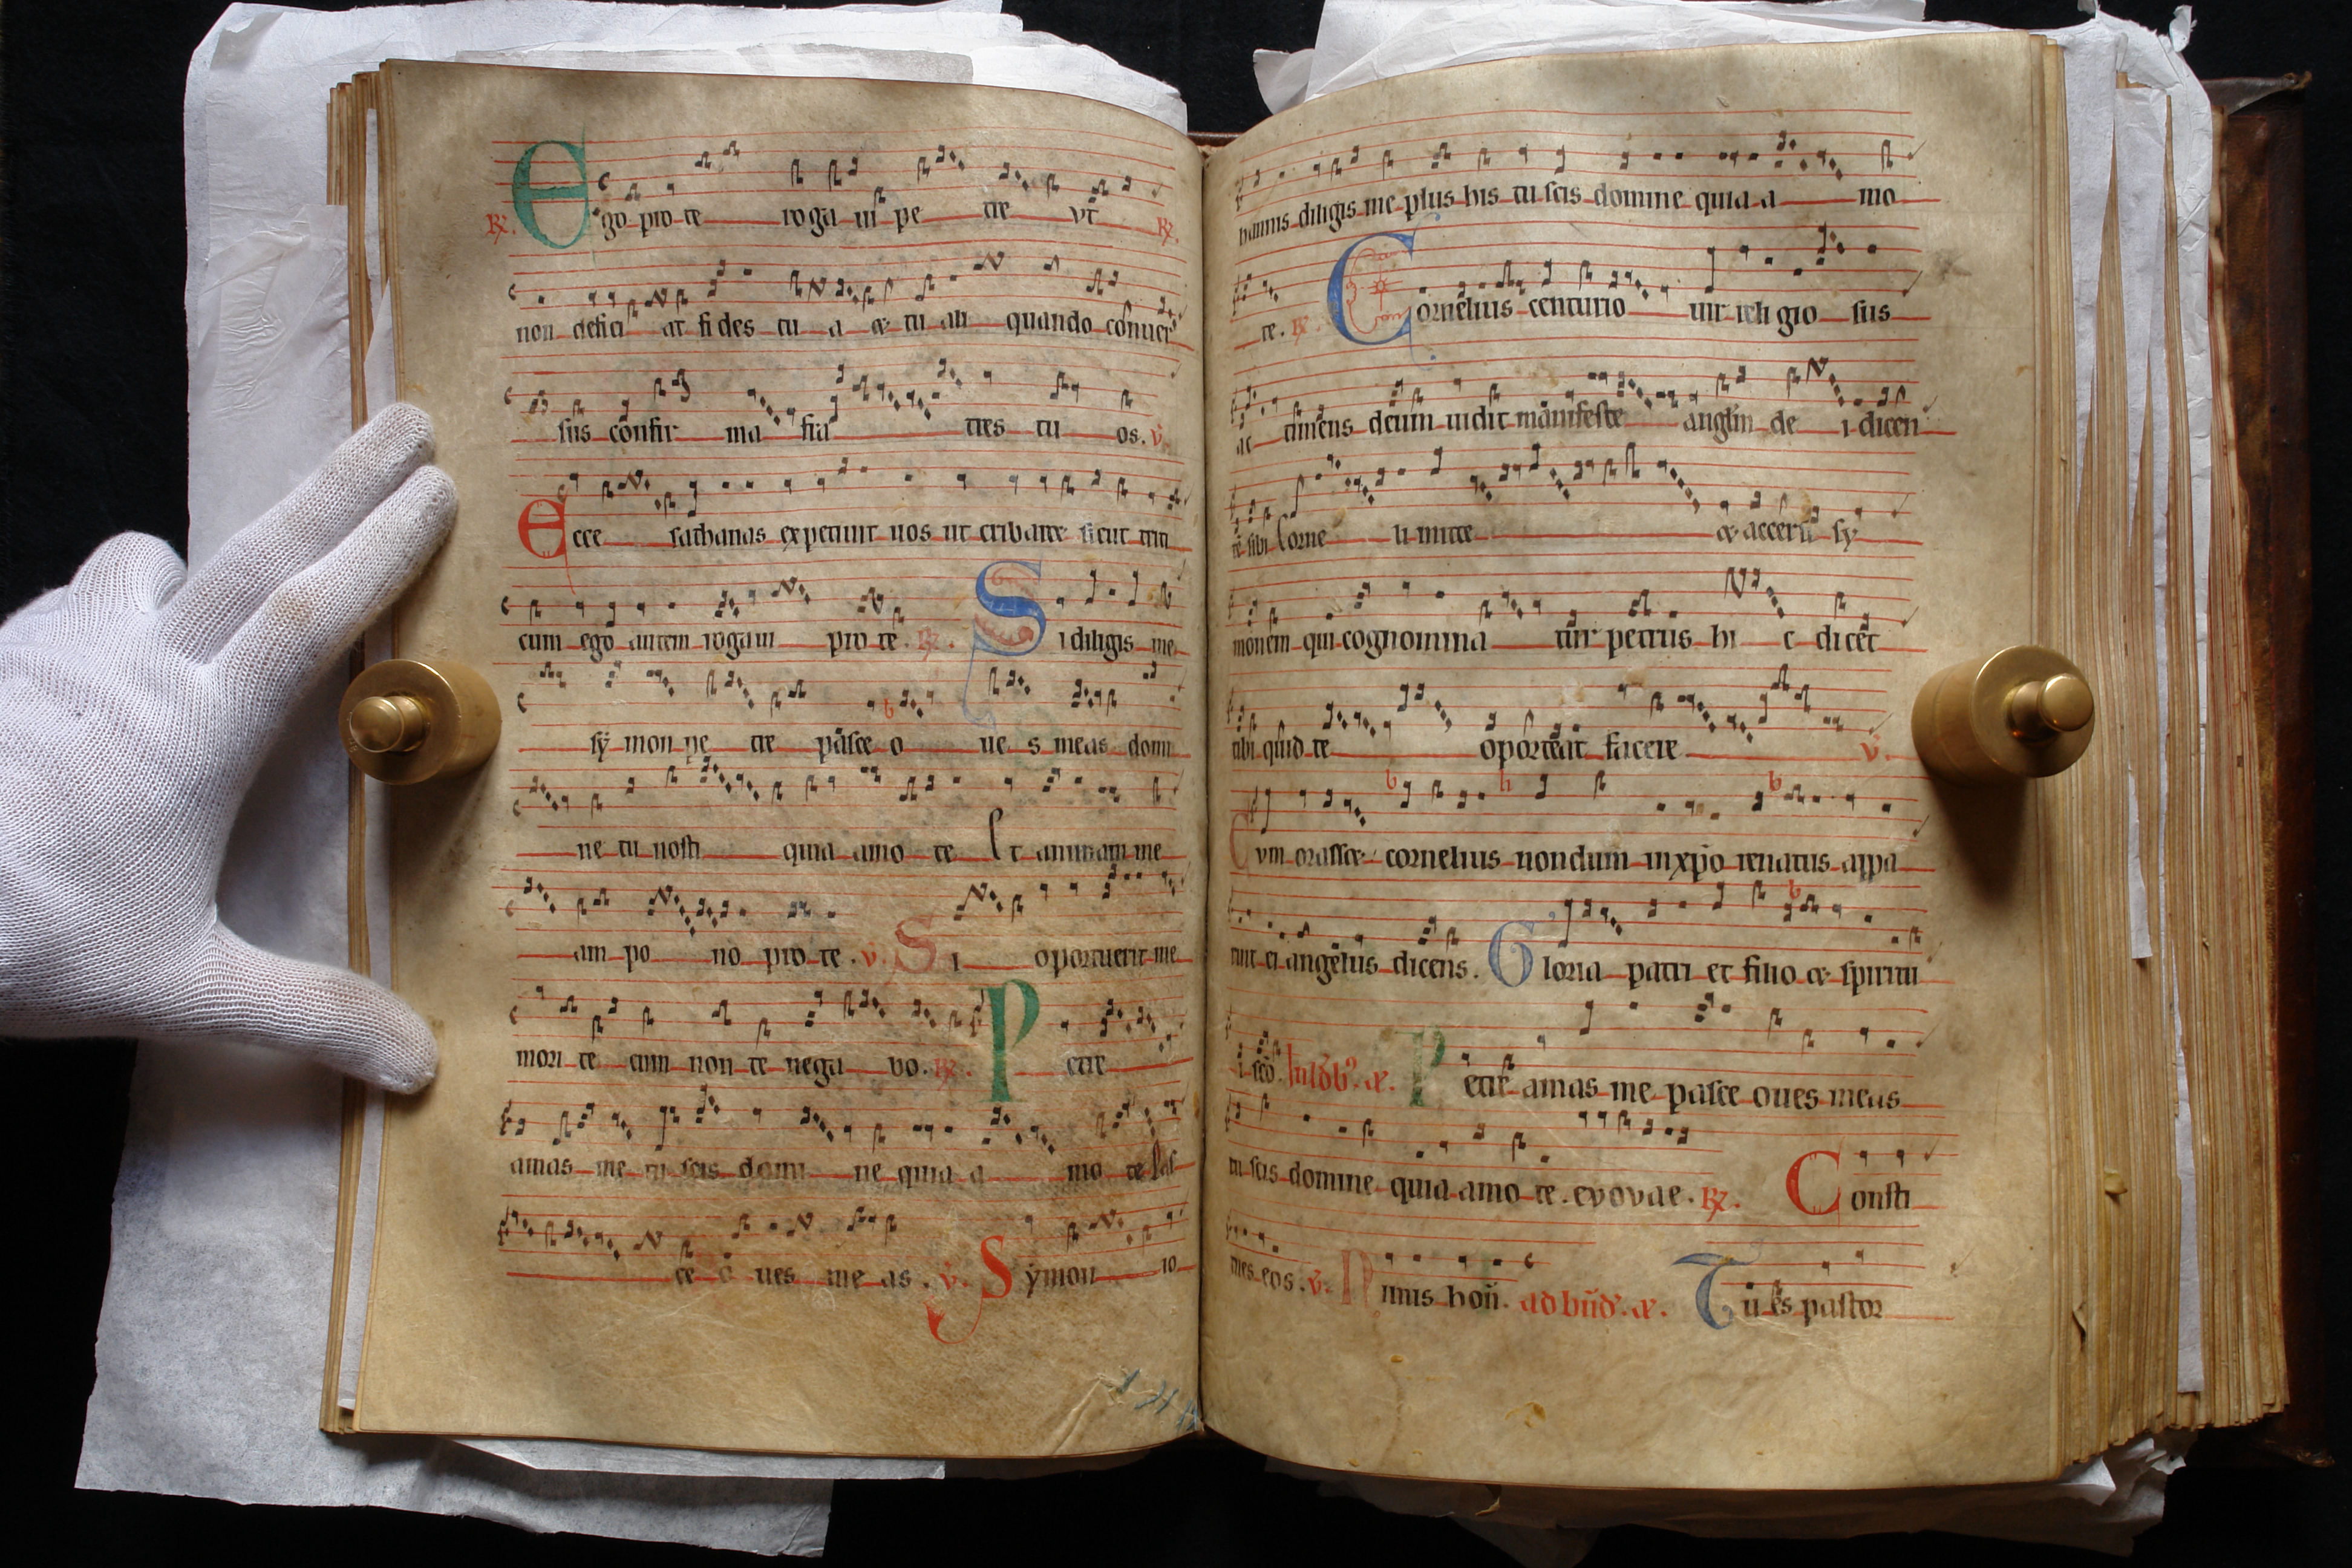 ℟. Ego pro te rogaui petre vt ℟.
non defici at fides tua & tu ali quando conuer
sus confir ma fra tres tu os. v̇.
Ecce sathanas expetiuit uos ut cribaret sicut triti
cum ego autem rogaui pro te. ℟. Si diligis me
sẏmon pe tre pasce o ue s meas domi
ne tu nosti quia amo te Et animam me
am po no pro te. v̇. Si oportuerit me
mori te cum non te nega bo. ℟. Petre
amas me tu scis domi ne quia a mo te
ce o ues me as. v̇. Sẏmon io
hannis diligis me plus his tu scis domine quia a mo
te. ℟. Cornelius centurio uir religio sus
ac timens deum uidit manifeste anglm de i dicen
tē sibi Corne li mitte & accersi sẏ
monem qui cognomina tur petrus hi c dicet
tibi quid te oporteat facere v̇.
Cvm orasset cornelius nondum in xp̄o renatus appa
ruit ei angelus dicens. Gloria patri et filio & spiritu
i scō. &. Petre amas me pasce oues meas
tu scis domine quia amo te. evovae. ℟. Consti
tues eos. v̇. nus hoū. ad bn̄d'. &. Tu es pastor